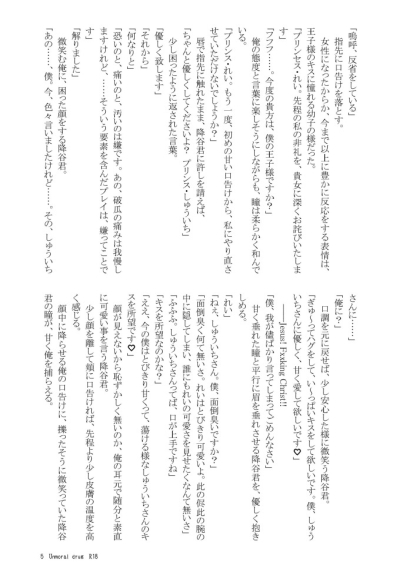 「嗚呼、反省をしている」
　指先に口付けを落とす。
　女性になったからか、今まで以上に豊かに反応をする表情は、
王子様のキスに憧れる幼子の様だった。
「プリンセス・れい。先程の私の非礼を、貴女に深くお詫びいたしま
す」
「フフフ……。今度の貴方は、僕の王子様ですか？」
　俺の態度と言葉に楽しそうにしながらも、瞳は柔らかく和んで
いる。
「プリンス・れい。もう一度、初めの甘い口付けから、私にやり直さ
せていただけないでしょうか？」
　唇で指先に触れたまま、降谷君に許しを請えば、
「ちゃんと優しくしてくださいよ？　プリンス・しゅういち」
　少し困ったように返された言葉。
「優しく致します」
「それから」
「何なりと」
「恐いのと、痛いのと、汚いのは嫌です。あの、破瓜の痛みは我慢し
ますけれど、……そういう要素を含んだプレイは、嫌ってことで
す」
「解りました」
　微笑む俺に、困った顔をする降谷君。
「あの……、僕。今、色々言いましたけれど……。その、しゅういち
さんに……」
「俺に？」
　口調を元に戻せば、少し安心した様に微笑う降谷君。
「ぎゅ～ってハグをして、い～っぱいキスをして欲しいです。僕、しゅう
いちさんに優しく、甘く愛して欲しいです♡」
　――Jesus! Fxxking Christ!!
「僕、我が儘ばかり言ってしまってごめんなさい」
　甘く垂れた瞳と平行に眉を垂れさせる降谷君を、優しく抱き
しめる。
「ねぇ、しゅういちさん。僕、面倒臭いですか？」
「れい」
「面倒臭く何て無いさ。れいはとびきり可愛いよ。此の侭此の腕の
中に隠してしまい、誰にもれいの可愛さを見せたくなんて無いさ」
「ふふふ。しゅういちさんってば、口が上手ですね」
「キスを所望なのかな？」
「ええ、今の僕はとびきり甘くって、蕩ける様なしゅういちさんのキ
スを所望です♡」
　顔が見えないから恥ずかしく無いのか、俺の耳元で随分と素直
に可愛い事を言う降谷君。
　少し顔を離して頬に口付ければ、先程より少し皮膚の温度を高
く感じる。
　顔中に降らせる俺の口付けに、擽ったそうに微笑っていた降谷
君の瞳が、甘く俺を捕らえる。
5　Unmoral drug　R18